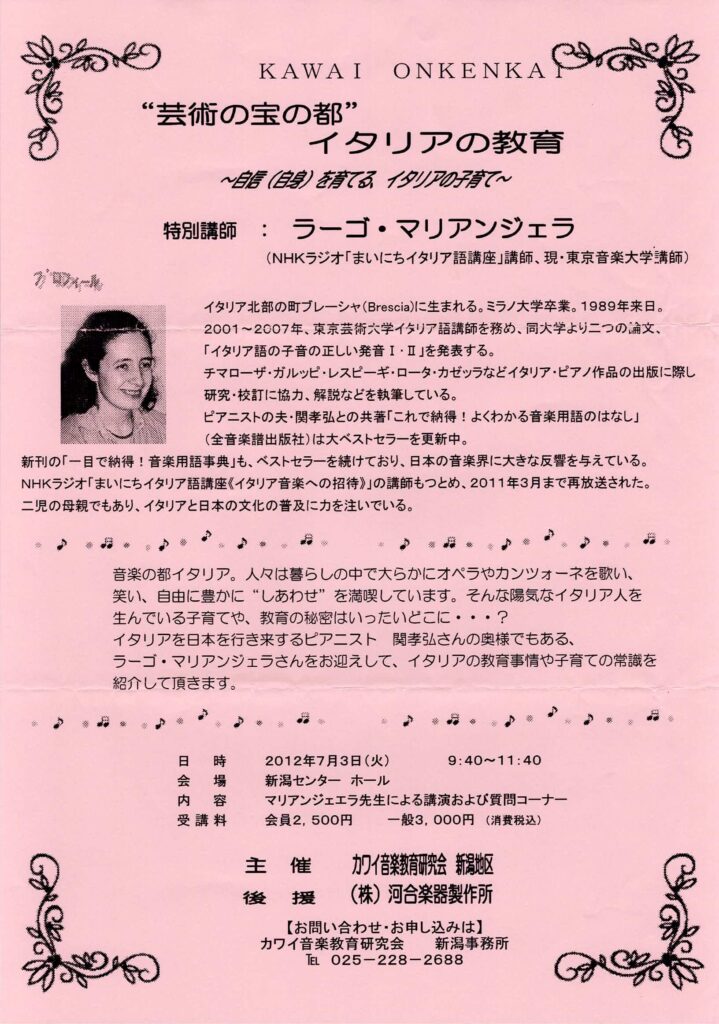 KAWAI ONKENKAI
“芸術の宝の都”
イタリアの教育
～自信（自身）を育てる、イタリアの子育て～
特別講師 ： ラーゴ・マリアンジェラ
（NHKラジオ「まいにちイタリア語講座」講師、現・東京音楽大学講師）
プロフィール
イタリア北部の町ブレーシャ(Brescia)に生まれる。ミラノ大学卒業。1989年来日。
2001～2007年、東京芸術大学イタリア語講師を務め、同大学より二つの論文、
「イタリア語の子音の正しい発音Ⅰ・Ⅱ」を発表する。
チマローザ・ガルッピ・レスピーギ・ロータ・カゼッラなどイタリア・ピアノ作品の出版に際し
研究・校訂に協力、解説などを執筆している。
ピアニストの夫・関孝弘との共著「これで納得！よくわかる音楽用語のはなし」
（全音楽譜出版社）は大ベストセラーを更新中。
新刊の「一目で納得！音楽用語事典」も、ベストセラーを続けており、日本の音楽界に大きな反響を与えている。
NHKラジオ「まいにちイタリア語講座《イタリア音楽への招待》」の講師もつとめ、2011年3月まで再放送された。
二児の母親でもあり、イタリアと日本の文化の普及に力を注いでいる。
音楽の都イタリア。人々は暮らしの中で大らかにオペラやカンツォーネを歌い、
笑い、自由に豊かに“しあわせ”を満喫しています。そんな陽気なイタリア人を
生んでいる子育てや、教育の秘密はいったいどこに・・・？
イタリアを日本を行き来するピアニスト 関孝弘さんの奥様でもある、
ラーゴ・マリアンジェラさんをお迎えして、イタリアの教育事情や子育ての常識を
紹介して頂きます。
日 時 2012年7月3日（火） 9：40～11：40
会 場 新潟センター ホール
内 容 マリアンジェエラ先生による講演および質問コーナー
受講料 会員2，500円 一般3，000円 （消費税込）
主 催 カワイ音楽教育研究会 新潟地区
後 援 （株）河合楽器製作所
【お問い合わせ・お申し込みは】
カワイ音楽教育研究会 新潟事務所
℡ 025－228－2688